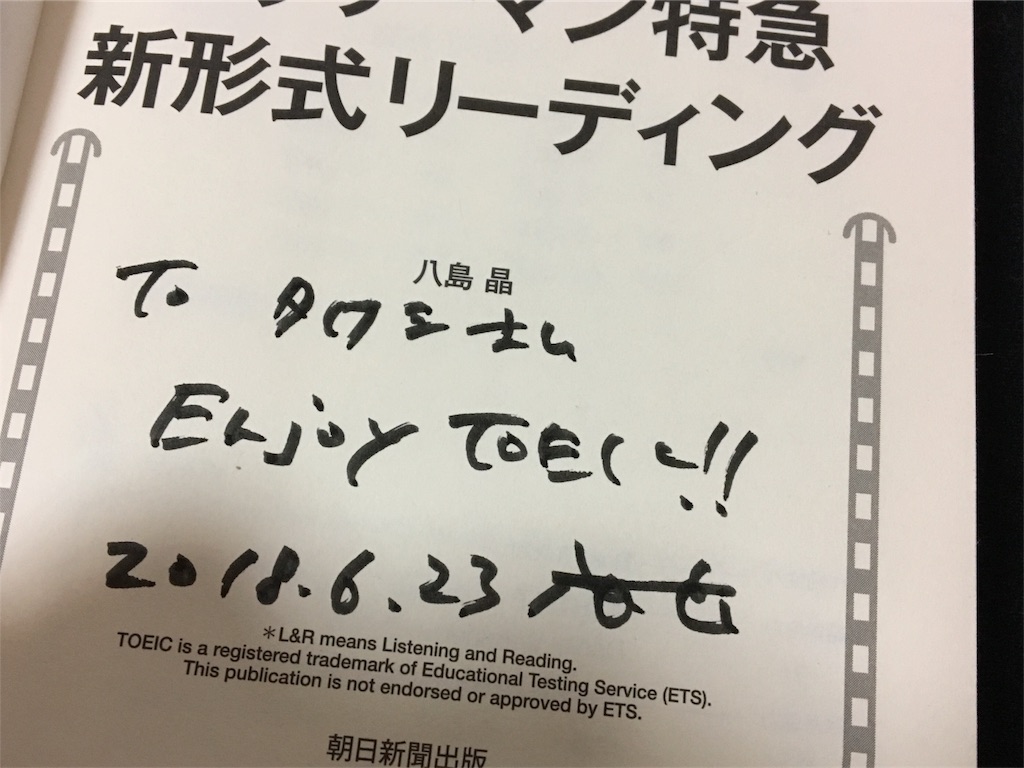 マン特急
新形式リーディング
八島 晶
To タワミさん
Enjoy TOEIC !!
2018.6.23
＊L&R means Listening and Reading.
TOEIC is a registered trademark of Educational Testing Service (ETS).
This publication is not endorsed or approved by ETS.
朝日新聞出版